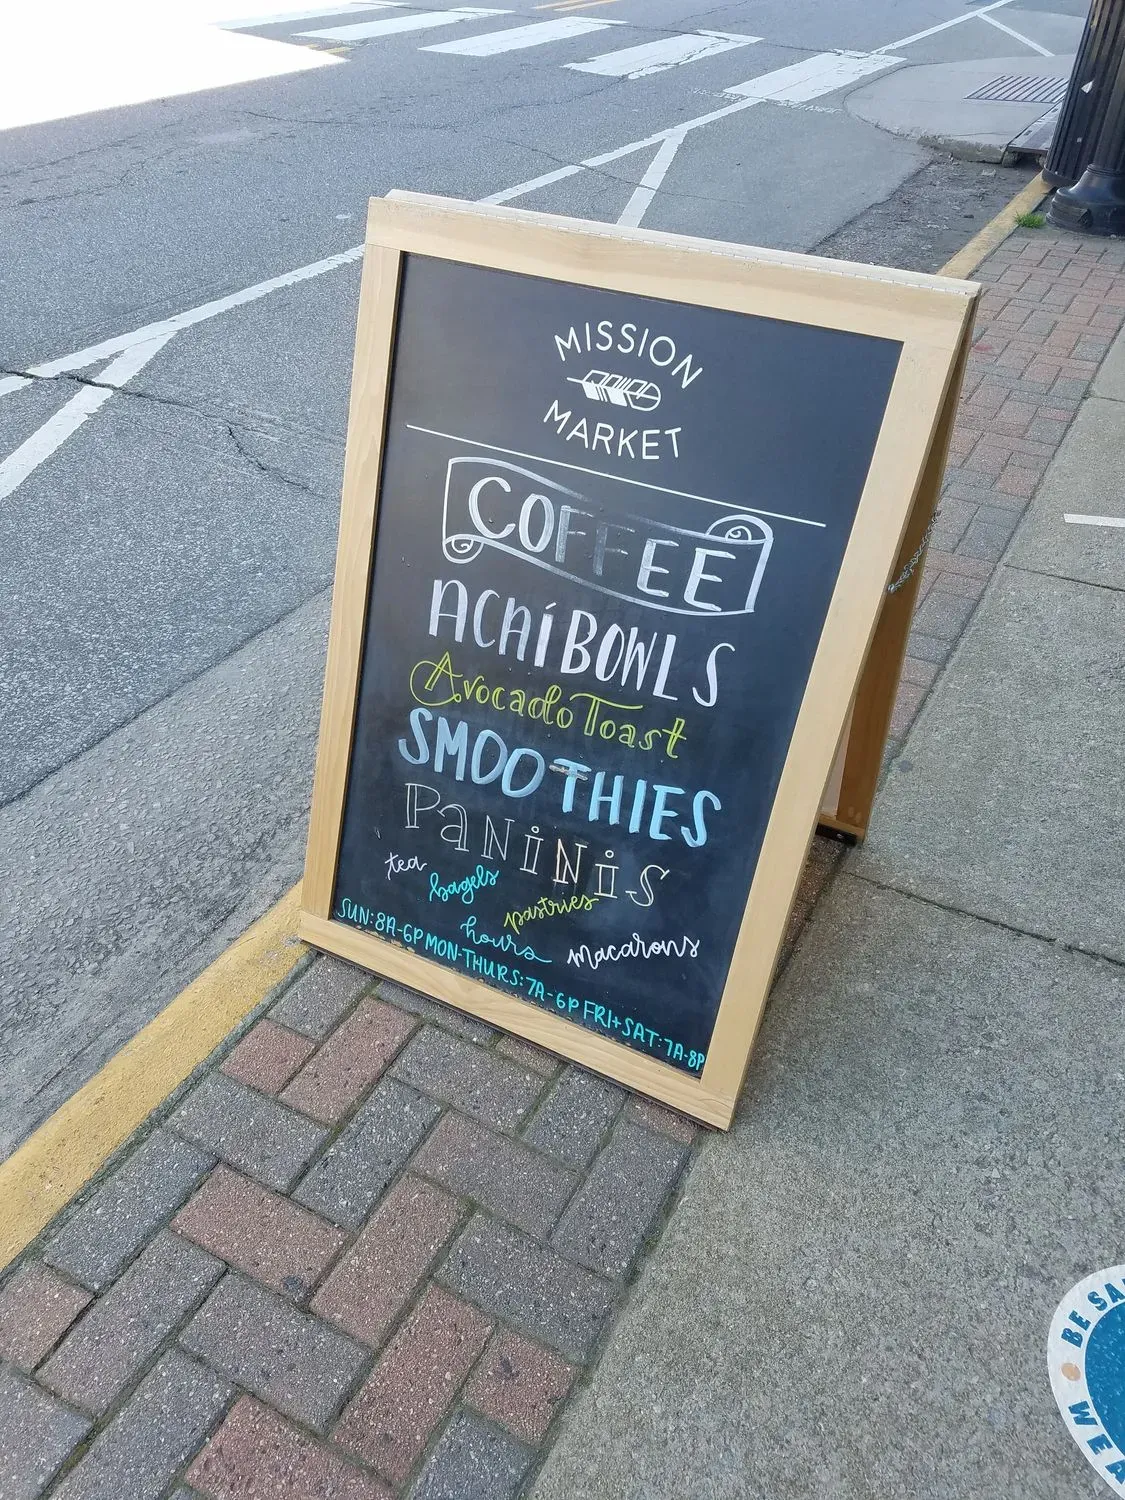 MISSION
MARKET
COFFEE
ACAÍ BOWLS
Avocado Toast
SMOOTHIES
PANINIS
tea bagels pastries macarons
hours
SUN: 8A-6P MON-THURS: 7A-6P FRI+SAT: 7A-8P
BE SA
WEA